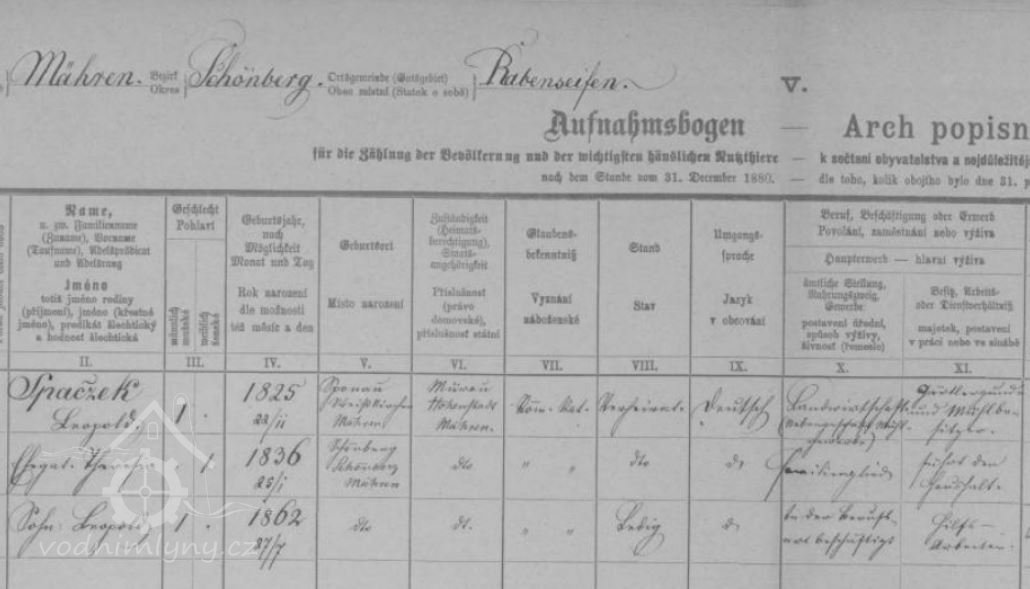 Mähren. Bezirk Okres Schönberg. Ortsgemeinde (Gutsgebiet) Obec místní (Statek o sobě) Rabenseifen.
V.
Aufnahmsbogen — Arch popisn
für die Zählung der Bevölkerung und der wichtigsten häuslichen Nutzthiere — k sečtení obyvatelstva a nejdůležitěj
nach dem Stande vom 31. December 1880. — dle toho, kolik obojího bylo dne 31. p
Name,
u. zw. Familienname
(Zuname), Vorname
(Taufname), Adelsprädicat
und Adelsrang
Jméno
totiž jméno rodiny
(příjmení), jméno (křestné
jméno), predikát šlechtický
a hodnost šlechtická
II.
Geschlecht
Pohlaví
männlich
mužské
weiblich
ženské
III.
Geburtsjahr,
nach
Möglichkeit
Monat und Tag
Rok narození
dle možnosti
též měsíc a den
IV.
Geburtsort
Místo narození
V.
Zuständigkeit
(Heimats-
berechtigung),
Staats-
angehörigkeit
Příslušnost
(právo
domovské),
příslušnost státní
VI.
Glaubens-
bekenntniß
Vyznání
náboženské
VII.
Stand
Stav
VIII.
Umgangs-
sprache
Jazyk
v obcování
IX.
Beruf, Beschäftigung oder Erwerb
Povolání, zaměstnání nebo výživa
Haupterwerb — hlavní výživa
ämtliche Stellung,
Nahrungszweig,
Gewerbe
postavení úřední,
spůsob výživy,
živnost (řemeslo)
X.
Besitz, Arbeits-
oder Dienstverhältniß
majetek, postavení
v práci nebo ve službě
XI.
Spaczek
Leopold.
1
1825
22/II
Sponau
Weißkirchen
Mähren
Mürau
Hohenstadt
Mähren.
Röm. Kat.
Verheirat.
Deutsch
Landwirtschaft
und Mühlbe-
sitzer.
Ehegat. Theresia
1.
1836
25/I
Schönberg
Schönberg
Mähren
dto
" "
dto
Familienglied
führt den
Haushalt.
Sohn: Leopold
1
1862
27/7
dto
dt.
" "
Ledig
In der Berufs-
art beschäftigt
Hilfs-
Arbeiter.
vodnimlyny.cz